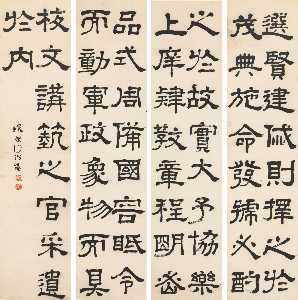 選賢建戚則擇之於
茂典施命發號必酌
之於故實大予協樂
上庠肄教章程明密
品式周備國容眡令
而動軍政象物而具
校文講藝之官采遺
於內